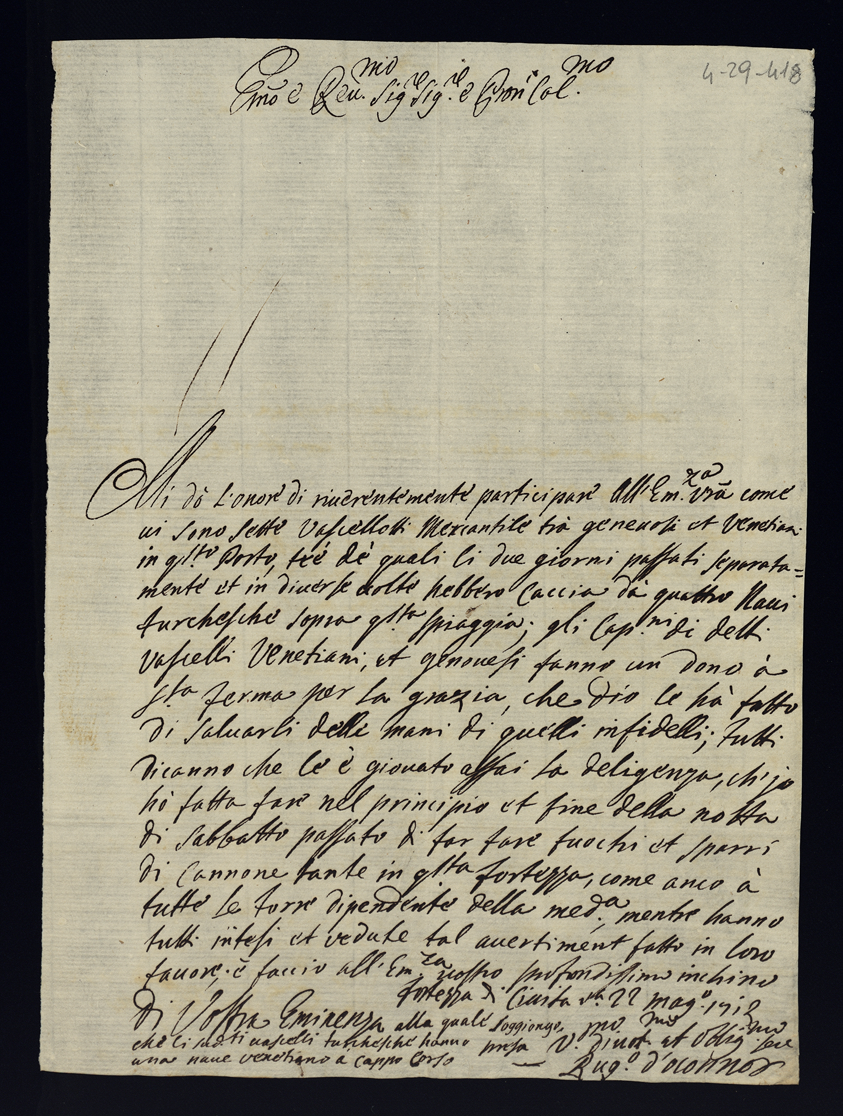 4-29-418
Emo è Reu.mo Sig.re Sig.re è Pron Col.mo
Mi dò l'onore di riuerentemente participare All'Em.za vrã come
ui sono sette Vascellotti Mercantile trà geneuosi et Venetiani
in qsto Porto, tré dé quali li due giorni passati separata=
mente et in diuerse uolte hebbero Caccia dà quattro Naui
turchesche sopra qsta spiaggia; gli Cap.ni di detti
Vascelli Venetiani, et genouesi fanno un dono à
Sta ferma per la grazia, che Dio le hà fatto
di saluarli delle mani di quelli infidelli; tutti
dicanno che le è giouato assai la deligenza, ch'jo
hò fatta fare nel principio et fine della notta
di sabbatto passato di far fare fuochi et sparri
di Cannone tante in qsta fortezza, come anco à
tutte le torre dipendente della med.a, mentre hanno
tutti intesi et vedute tal auertiment fatto in loro
fauore, è faccio all'Em.za vostra profondissimo inchino
fortezza di Ciuita va. 22 mago.
Di Vostra Eminenza alla quale soggiongo,
che li uascelli turchesche hanno presa
una naue venetiano à cappo Corso
V. Diuot.mo et Oblig.mo
Rug.o d'oconnor